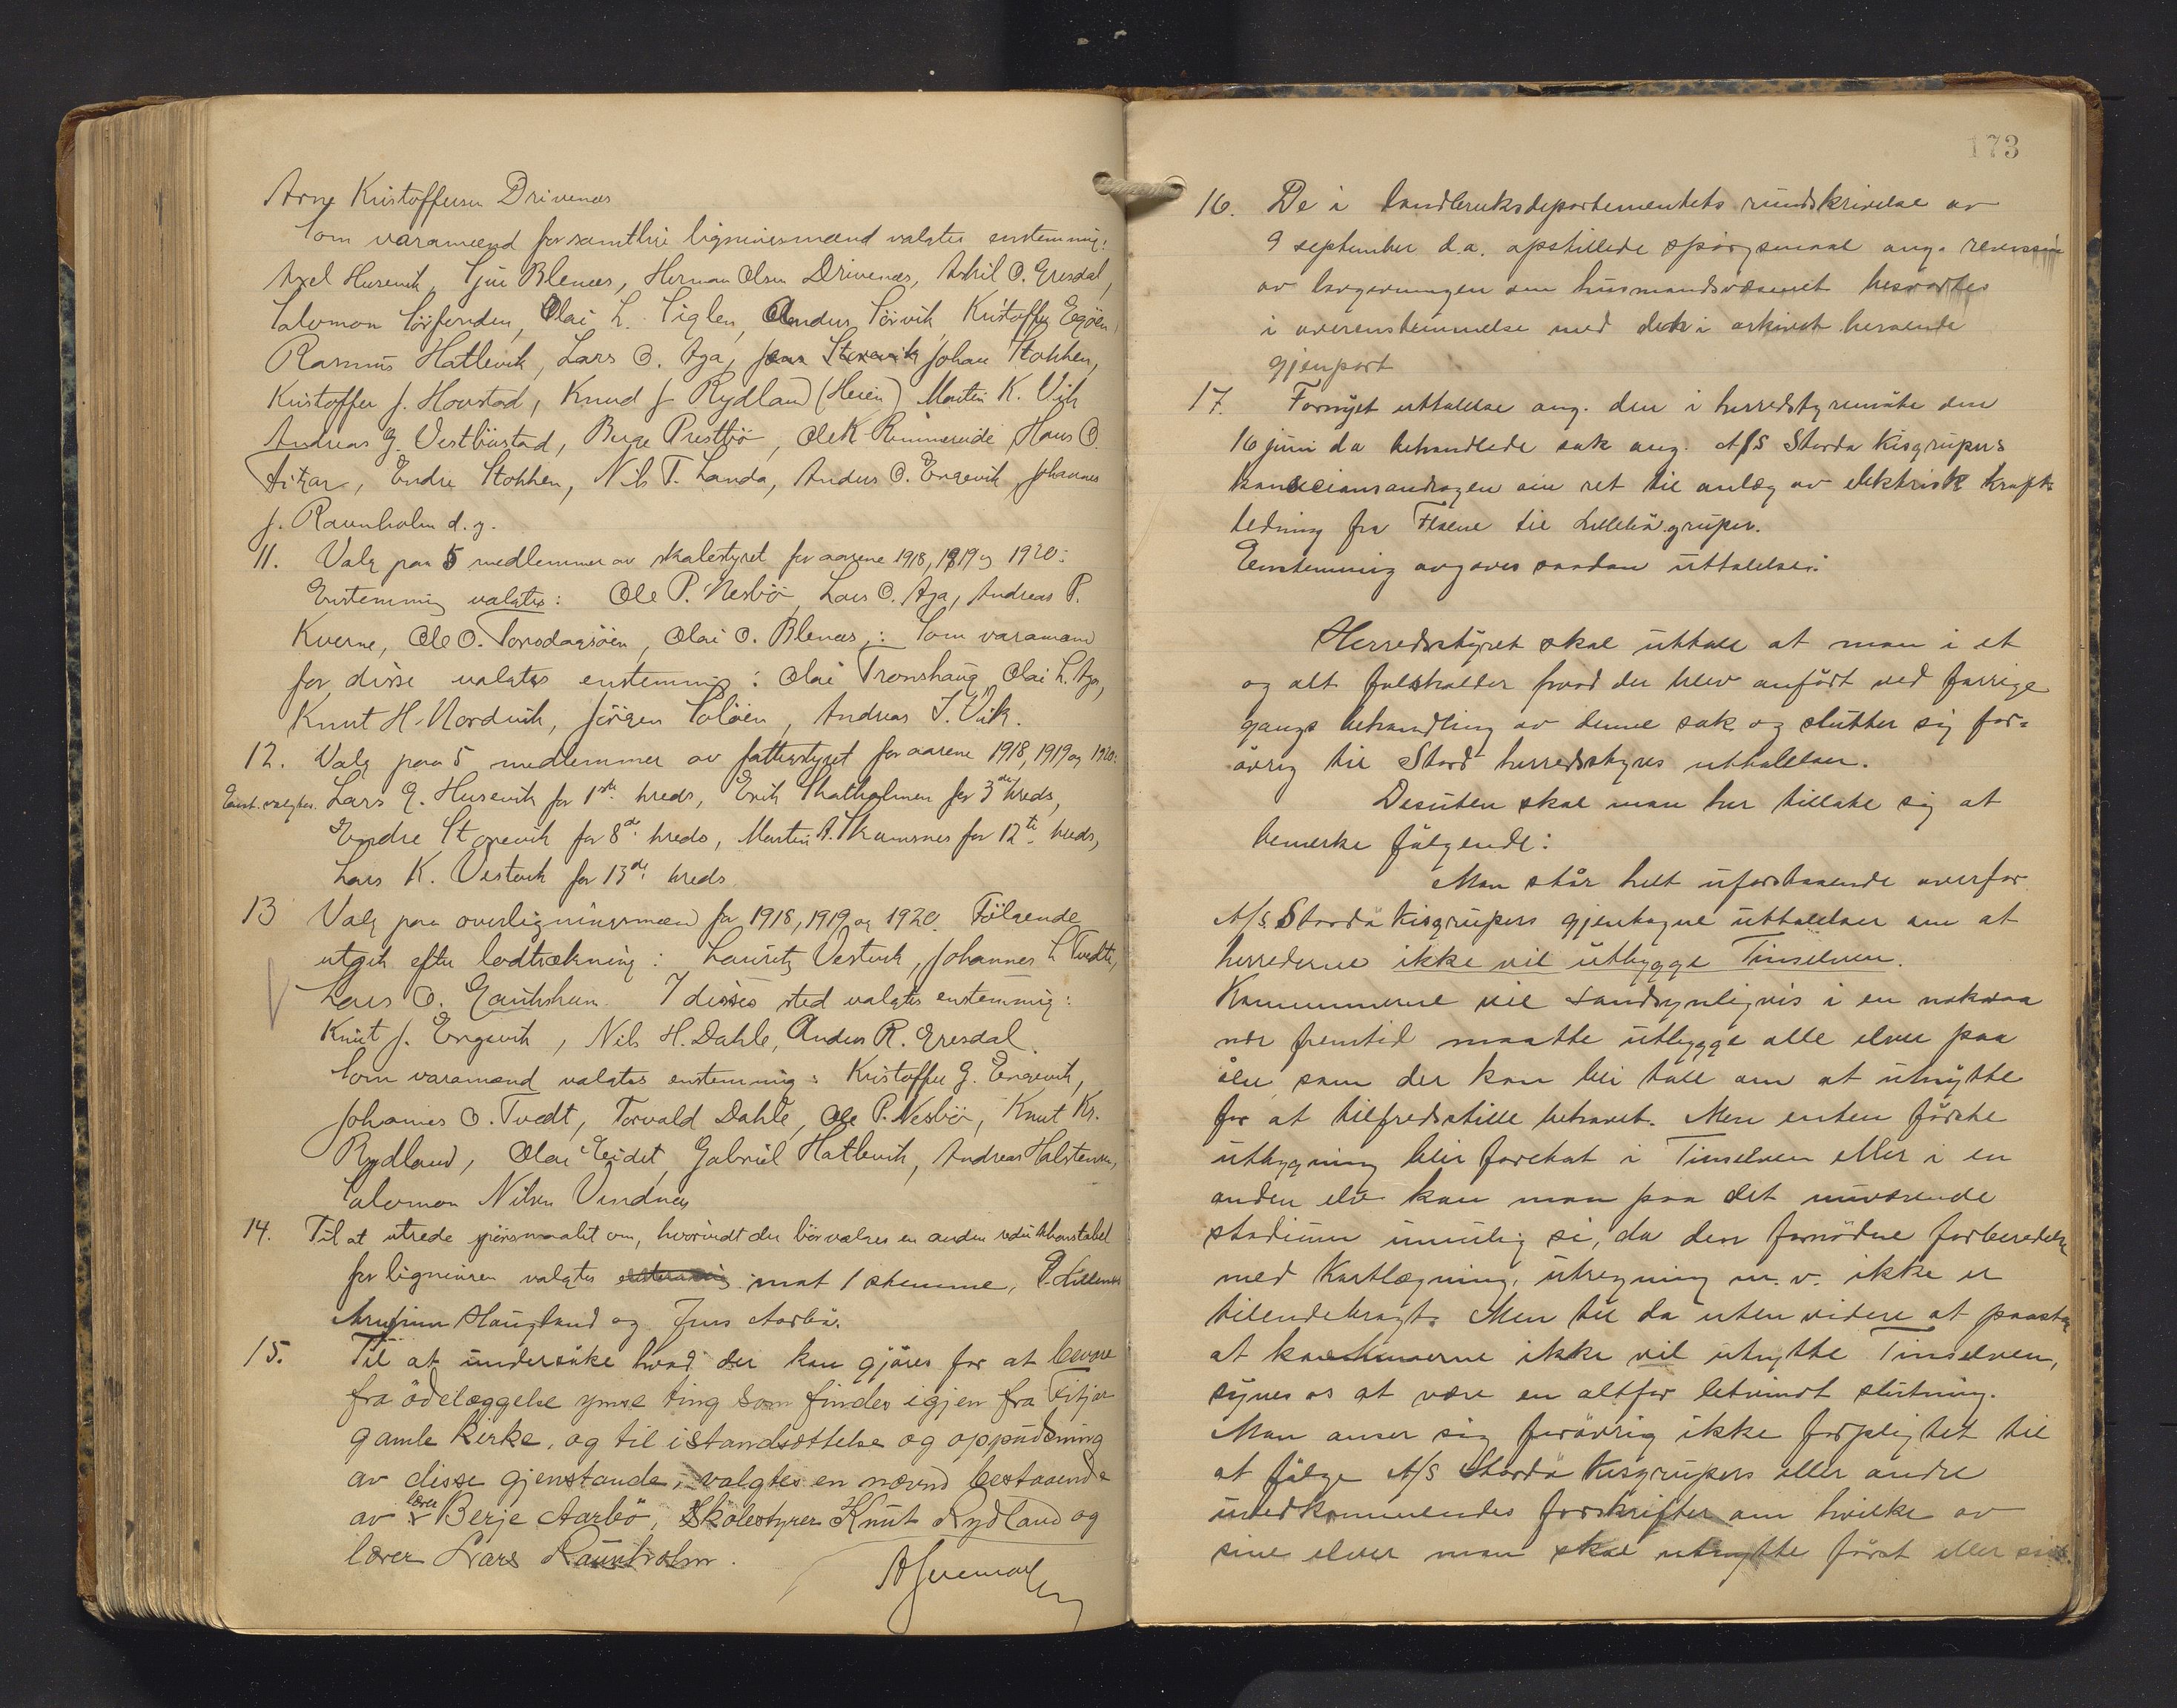 Arne Kristoffersen Drivenæs
Som varamænd for samtlige ligningsmænd valgtes enstemmig:
Axel Husevik, Sjur Blenæs, Herman Olsen Drivenæs, Askil O. Gresdal,
Salomon Sörfonden, Olai L. Siglen, Anders Sørvik, Kristoffer Egöen,
Rasmus Hatlevik, Lars O. Aga, Johan Stokken,
Kristoffer J. Hovstad, Knud J Rydland (Heien) Martin K. Vik
Andreas G. Vestbøstad, Berge Prestbö, Ole K Rimmereide, Hans O.
Endre Stokken, Nils T. Landa, Anders O. Engevik, Johannes
J. Raunholm d. y.
11. Valg paa 5 medlemmer av skolestyret for aarene 1918, 1919 og 1920:
Enstemmig valgtes: Ole P. Nesbö, Lars O. Aga, Andreas P.
Kverne, Ole O. Torsdagsöen, Olai O. Blenæs; Som varamænd
for disse valgtes enstemmig: Olai Tronshaug, Olai L. Aga,
Knut H. Nordvik, Jörgen Solöen, Andreas J. Vik.
12. Valg paa 5 medlemmer av fattigstyret for aarene 1918, 1919 og 1920:
Enst. valgtes. Lars E. Husevik for 1ste kreds, Erik Skatholmen for 3die kreds,
Endre Storevik for 8de kreds, Martin A. Skumsnes for 12te kreds,
Lars K. Vestvik for 13de kreds.
13 Valg paa overligningsmænd for 1918, 1919 og 1920. Følgende
utgik efter lodtrækning: Lauritz Vestvik, Johannes L Tvedte,
Lars O. I disses sted valgtes enstemmig:
Knut J. Engevik, Nils H. Dahle, Anders R. Gresdal
Som varamænd valgtes enstemmig: Kristoffer G. Engevik,
Johannes O. Tvedt, Torvald Dahle, Ole P. Nesbö, Knut Kr.
Rydland, Olai Eidet, Gabriel Hatlevik, Andreas Halstensen,
Salomon Nilsen Vindnes
14. Til at utrede spörsmaalet om, hvorvidt der bör vælges en anden reduktionstabel
for ligningen valgtes mot 1 stemme,
Haugland og Jens Aarbö.
15. Til at undersöke hvad der kan gjöres for at berge
fra ödelæggelse ymse ting som findes igjen fra Fitjar
gamle kirke, og til istandsættelse og oppudsning
av disse gjenstande, valgtes en nævnd bestaaende
av lærer Berje Aarbö, Skolestyrer Knut Rydland og
lærer Lars Raunholm.
173
16. De i landbruksdepartementets rundskrivelse av
9 september d.a. opstillede spörgsmaal ang. revission
av lovgivningen om husmandsvæsenet besvartes
i overensstemmelse med det i arkivet beroende
gjenpart
17. Fornyet uttalelse ang. den i herredstyremöte den
16 juni d a behandlede sak ang. A/S Stordø Kisgrubers
koncessionsandragen om ret til anlæg av elektrisk kraft-
ledning fra til Lillebö gruber.
Enstemmig avgaves saadan uttalelse:
Herredsstyret skal uttale at man i et
og alt fastholder hvad der blev anfört ved forrige
gangs behandling av denne sak og slutter sig for-
övrig til Stord herredsstyres uttalelser.
Desuten skal man her tillate sig at
bemerke fölgende:
Man står helt uforstaaende overfor
A/S. Stordø Kisgrubers gjentagne uttalelser om at
herrederne ikke vil utbygge Tinselven.
Kommunerne vil sandsynligvis i en nok saa
nær fremtid maatte utbygge alle elver paa
öen, som der kan bli tale om at utnytte
for at tilfredsstille behovet. Men enten förste
utbygning blir foretat i Tinselven eller i en
anden elv kan man paa det nuværende
stadium umulig si, da den fornödne forberedelse
med kartlægning, utregning m. v. ikke er
tilendebragt. Men til da uten videre at paastaa
at kommunerne ikke vil utnytte Tinselven,
synes os at være en altfor letvindt slutning.
Man anser sig forövrig ikke forpligtet til
at fölge A/S Stordø Kisgrubers eller andre
uvedkommendes forskrifter om hvilke av
sine elver man skal utnytte först eller sist.